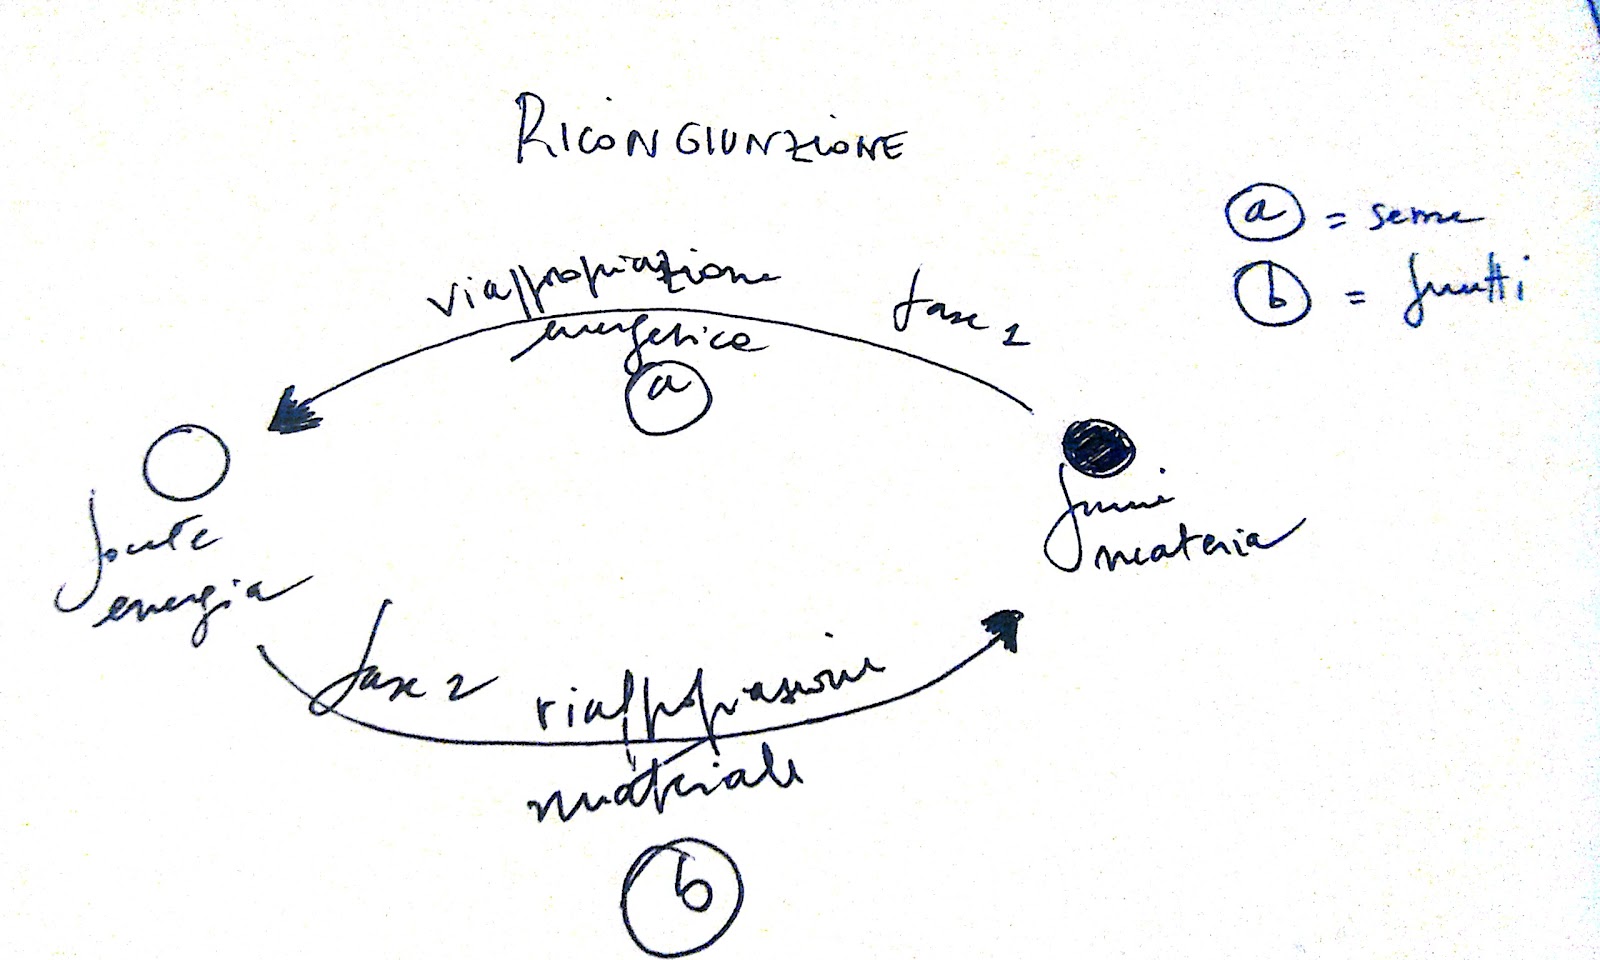 RICONGIUNZIONE
a = seme
b = frutti
riappropriazione
energetica
a
fase 1
fonte
energia
materia
fase 2
riappropriazione
materiale
b